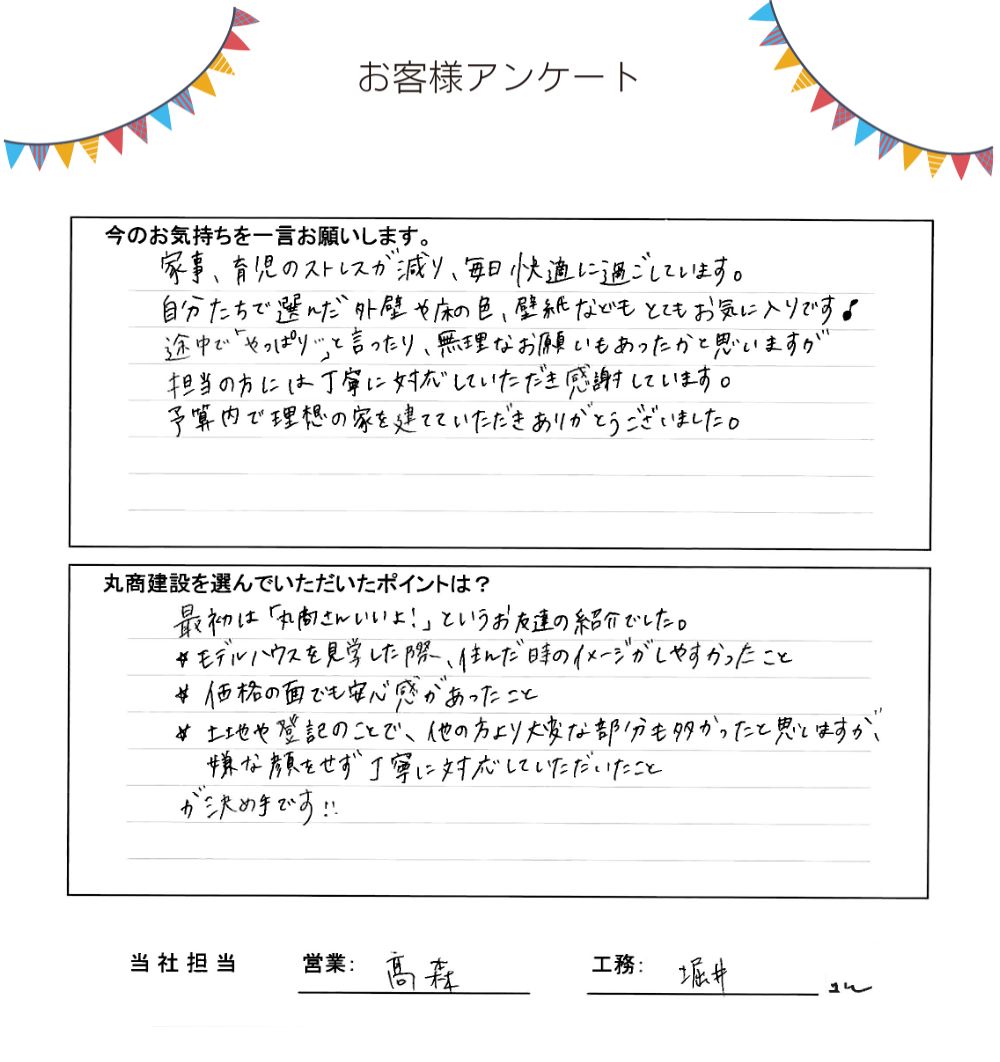 お客様アンケート
今のお気持ちを一言お願いします。
家事、育児のストレスが減り、毎日快適に過ごしています。
自分たちで選んだ外壁や床の色、壁紙などもとてもお気に入りです♪
途中で「やっぱり…」と言ったり、無理なお願いもあったかと思いますが
担当の方には丁寧に対応していただき感謝しています。
予算内で理想の家を建てていただきありがとうございました。
丸商建設を選んでいただいたポイントは？
最初は「丸商さんいいよ！」というお友達の紹介でした。
☆モデルハウスを見学した際、住んだ時のイメージがしやすかったこと
☆価格の面でも安心感があったこと
☆土地や登記のことで、他の方より大変な部分も多かったと思いますが、
嫌な顔をせず丁寧に対応していただいたこと
が決め手です!!
当社担当 営業: 髙森 工務: 堀井 さん